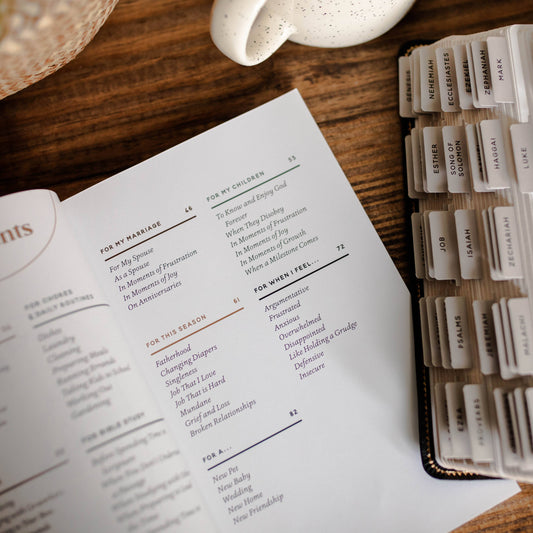 nts
FOR CHORES
& DAILY ROUTINES
Dishes
Laundry
Cleaning
Preparing Meals
Running Errands
Kids to School
Working Out
Gardening
FOR BIBLE STUDY
Before Spending Time in
Scripture
FOR MY MARRIAGE 46
For My Spouse
As a Spouse
In Moments of Frustration
In Moments of Joy
On Anniversaries
FOR THIS SEASON 61
Fatherhood
Changing Diapers
Singleness
Job That I Love
Job That is Hard
Mundane
Grief and Loss
Broken Relationships
FOR A... 82
New Pet
New Baby
Wedding
New Home
New Friendship
FOR MY CHILDREN 55
To Know and Enjoy God
Forever
When They Disobey
In Moments of Frustration
In Moments of Joy
In Moments of Growth
When a Milestone Comes
FOR WHEN I FEEL... 72
Argumentative
Frustrated
Anxious
Overwhelmed
Disappointed
Like Holding a Grudge
Defensive
Insecure
GENESIS
NEHEMIAH
ECCLESIASTES
EZEKIEL
ZEPHANIAH
MARK
ESTHER
SONG OF
SOLOMON
HAGGAI
LUKE
JOB
ISAIAH
ZECHARIAH
PSALMS
JEREMIAH
MALACHI
EZRA
PROVERBS